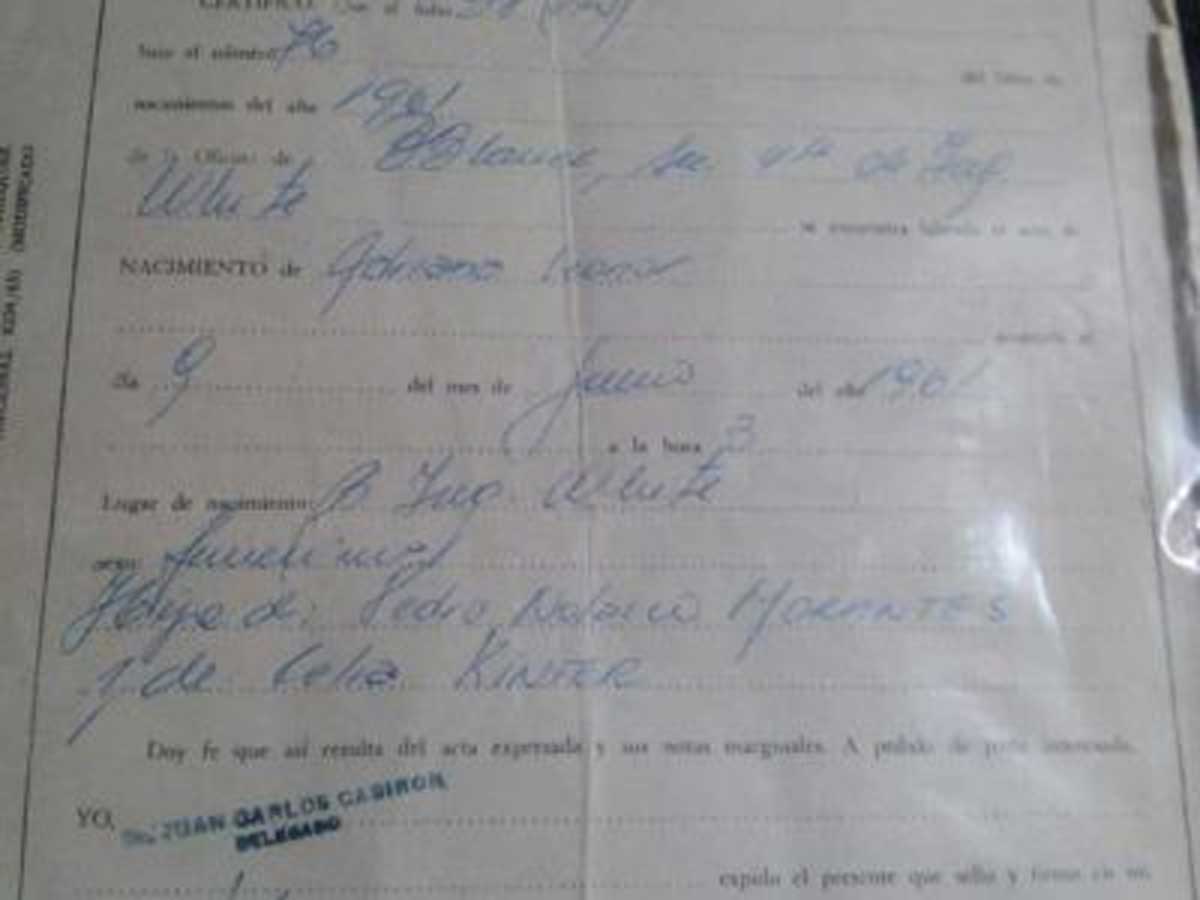 CERTIFICO: Que al folio
bajo el número 76 del libro de
nacimientos del año 1961
de la Oficina de BBlanca, de Ing
White se encuentra labrada el acta de
NACIMIENTO de Adriana Leonor
ocurrido el
día 9 del mes de Junio del año 1961
a la hora 3
Lugar de nacimiento: B Ing. White
sexo: femenino
Hija de: Pedro MORANTES
y de Celia KINTER
Doy fe que así resulta del acta expresada y sus notas marginales. A pedido de parte interesada,
YO, JUAN CARLOS CASIRON
DELEGADO
expido el presente que sello y firmo en mi